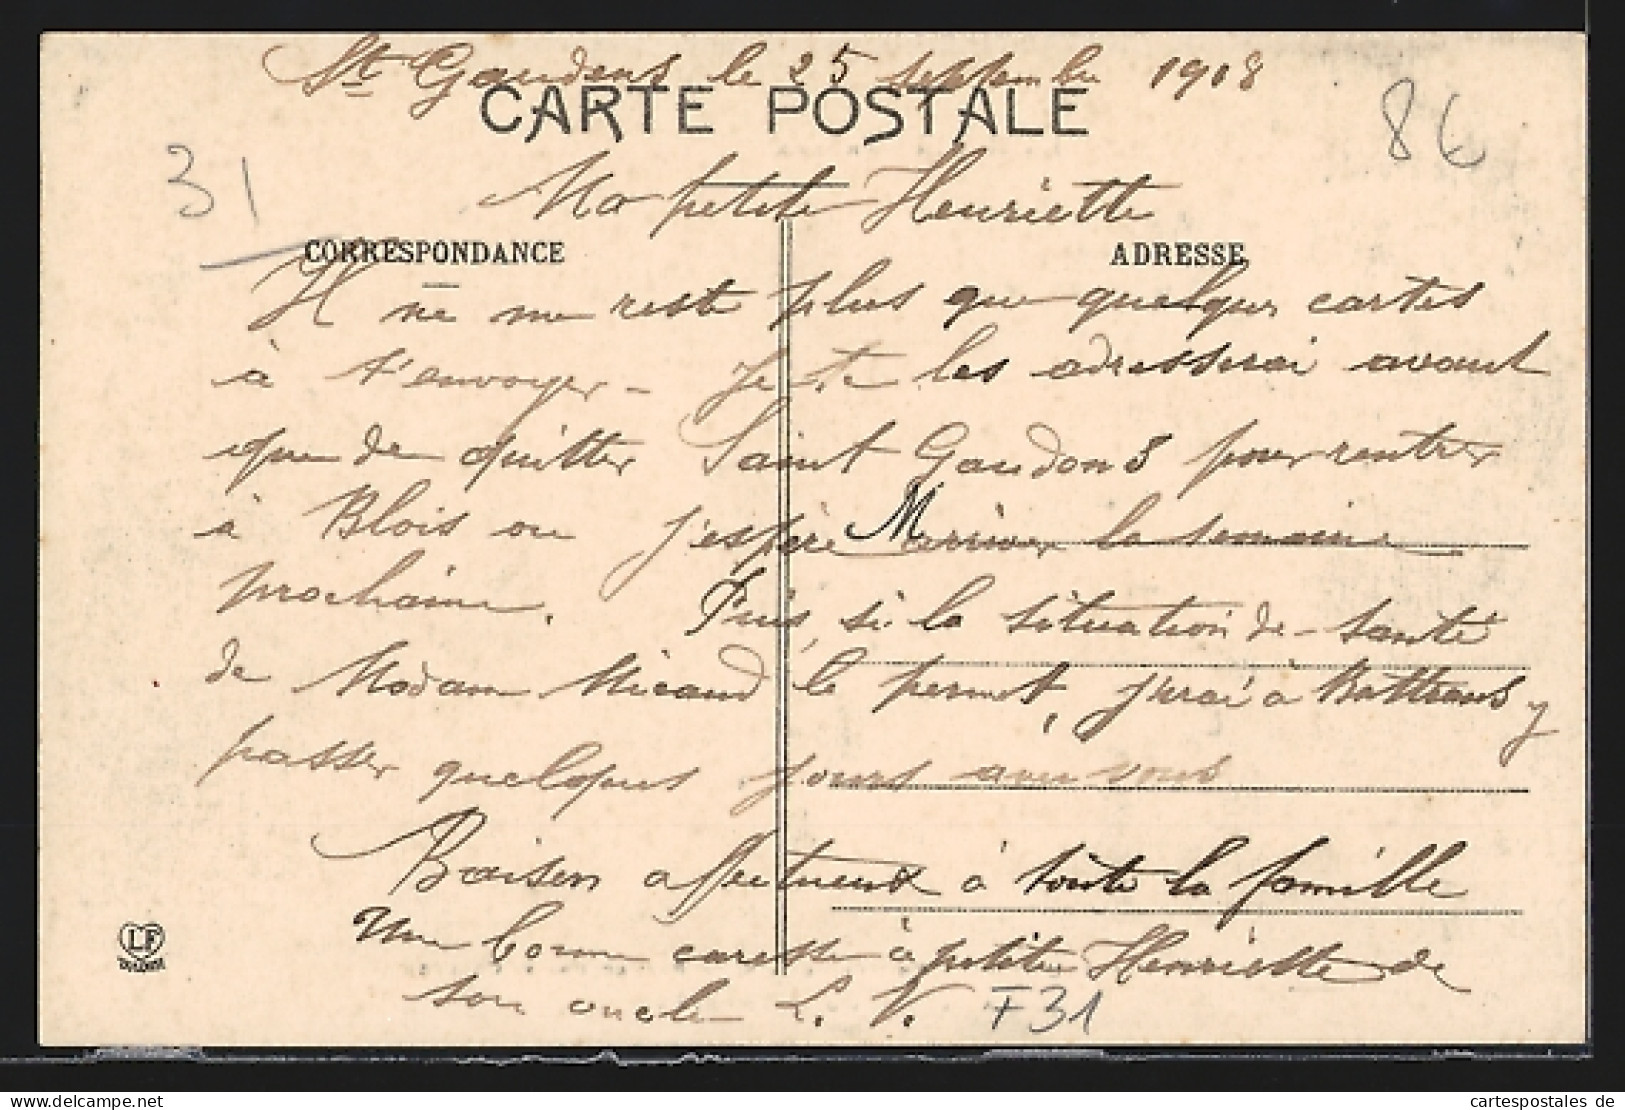 St Gaudens le 25 septembre 1918
CARTE POSTALE
86
31
Ma petite Henriette
CORRESPONDANCE
ADRESSE
Il ne me reste plus que quelques cartes
à t'envoyer - Je te les adresserai avant
que de quitter Saint Gaudens pour rentrer
à Blois ou j'espère M arriver la semaine
prochaine. Puis, si la situation de santé
de Madame Micaud le permet, j'irai à y
passer quelques jours avec vous
Baisers affectueux à toute la famille
Une bonne caresse à petite Henriette de
son oncle L. V.
F31
LF
TOULOUSE
cartespostales de
www.cartespostales.de